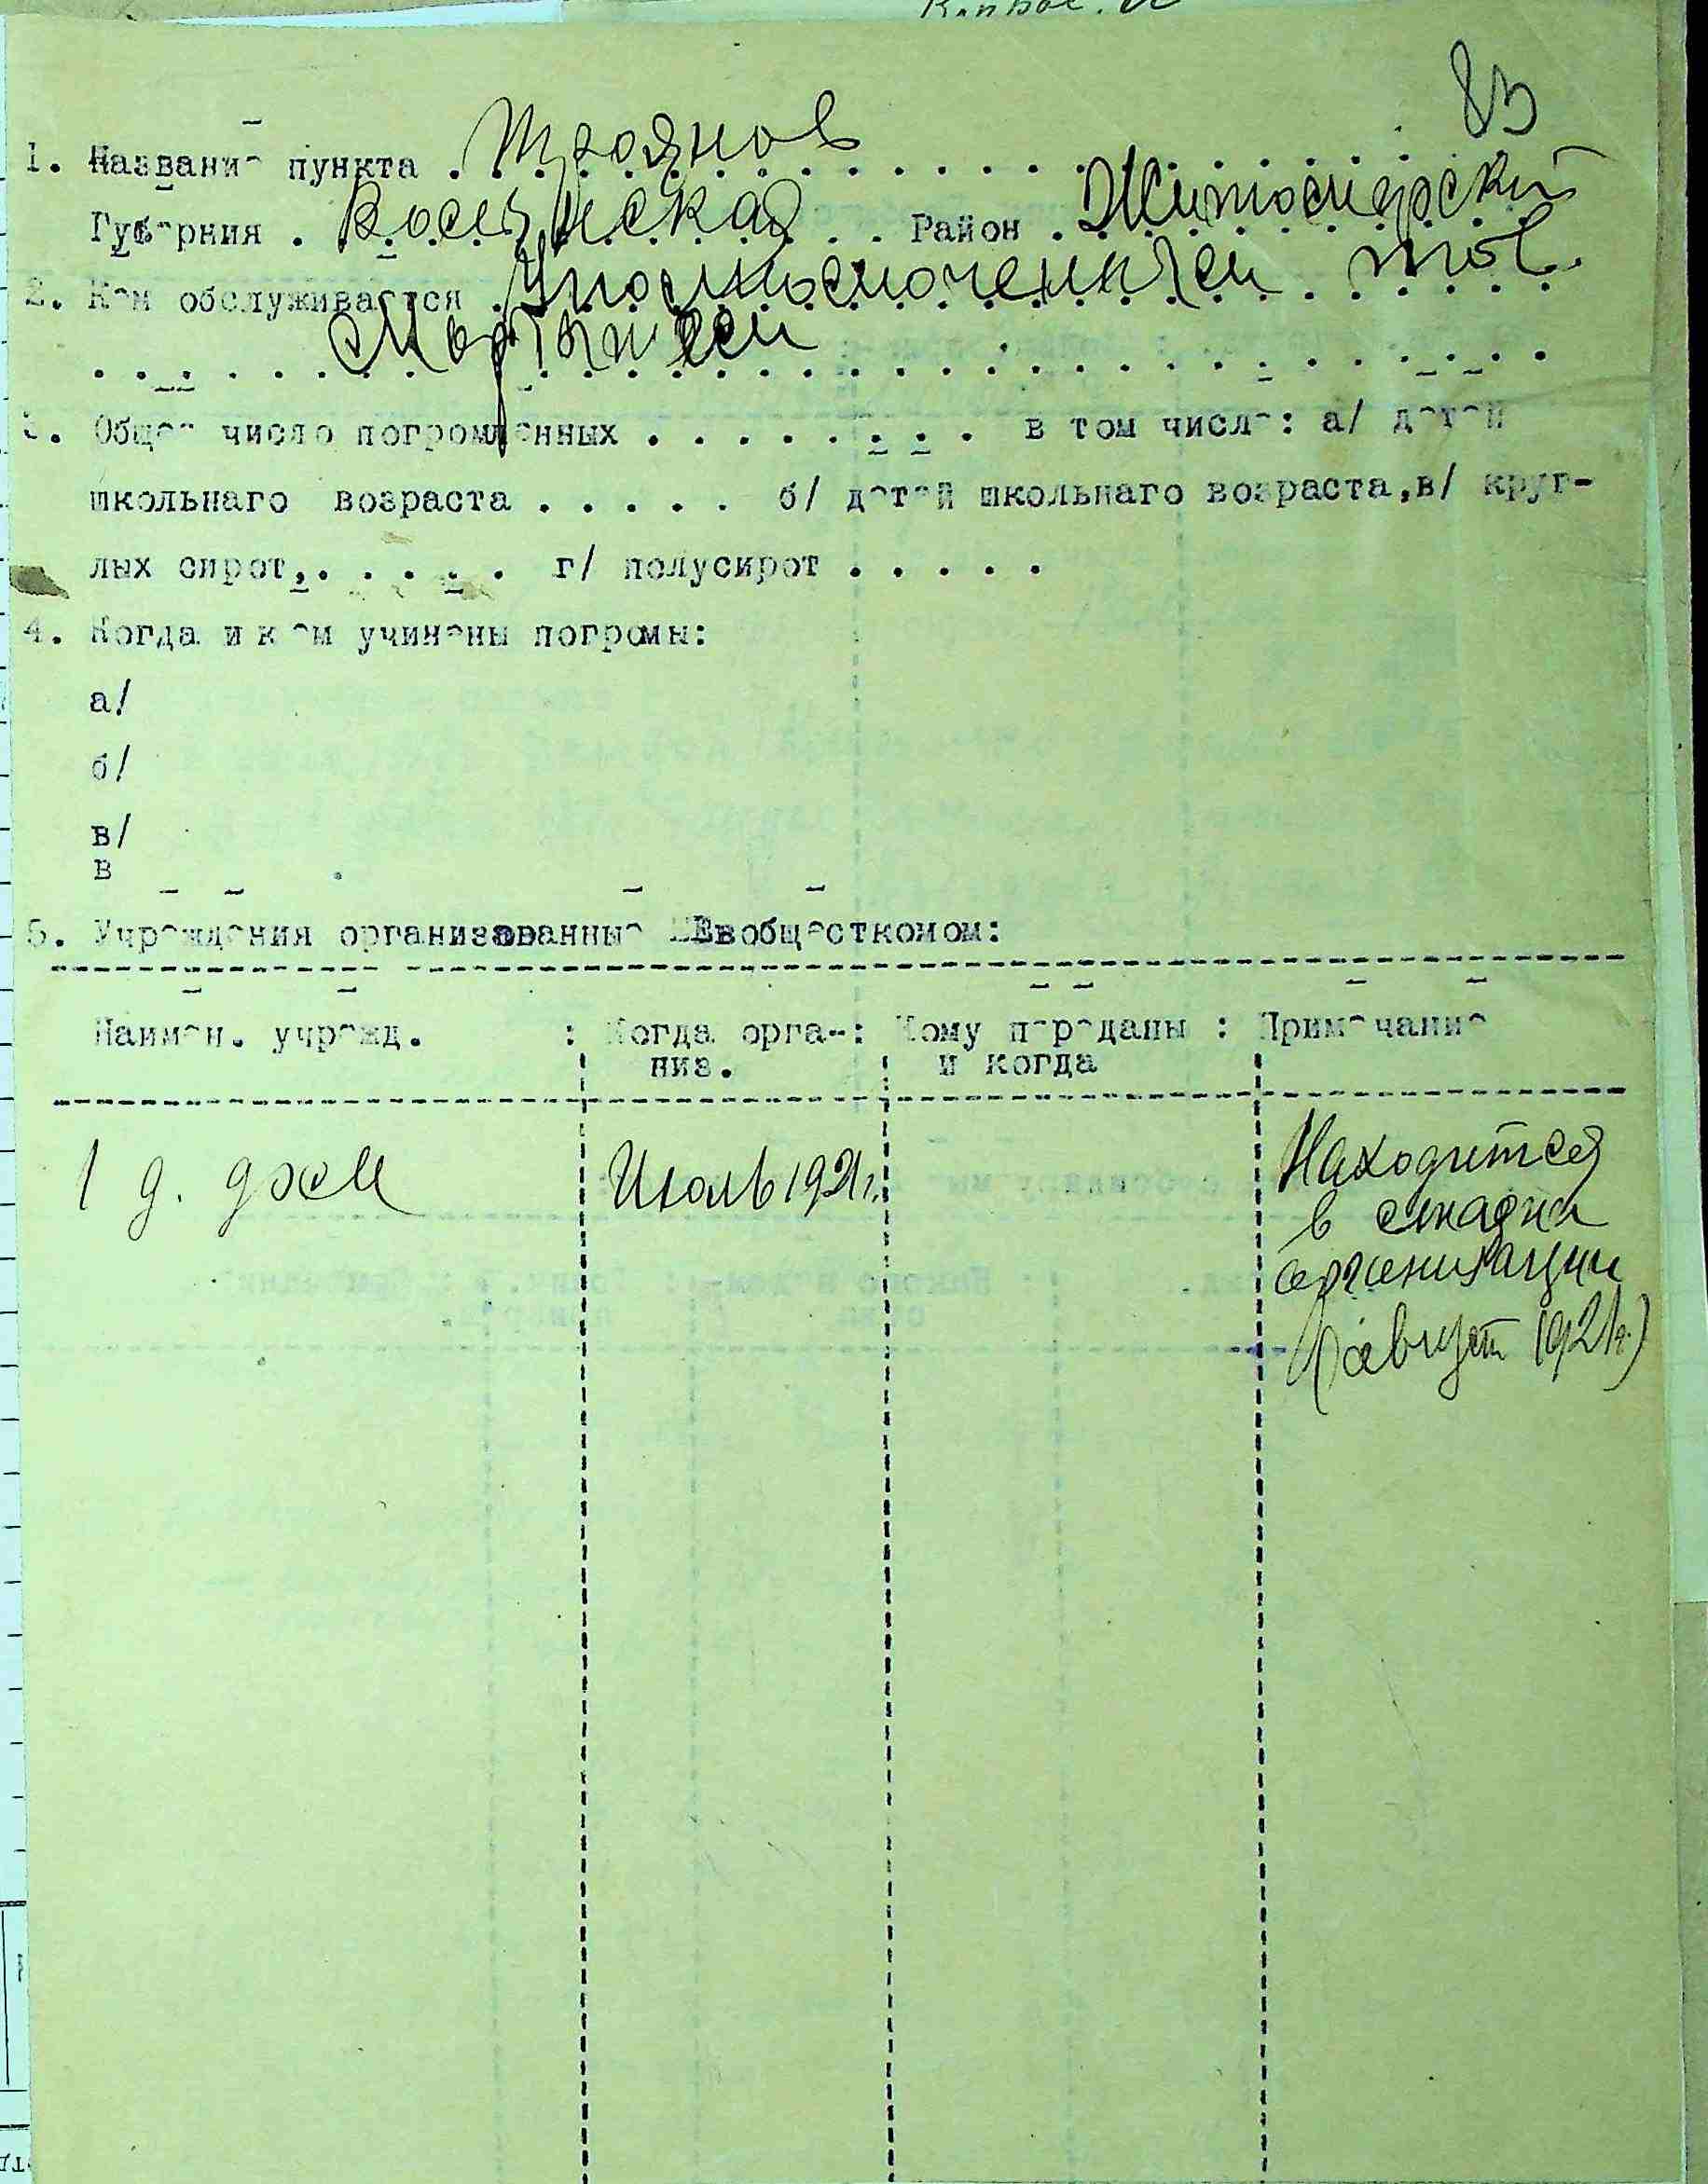 83
1. Название пункта . Троянов . . . . . . . . . . . . .
Губерния . Волынская . . Район . Житомирский
2. Кем обслуживается . Уполномоченным тов.
3. Общее число погромленных . . . . . . . . в том числе: а/ детей
школьнаго возраста . . . . . б/ детей школьнаго возраста,в/ круг-
лых сирот,. . . . . г/ полусирот . . . . .
4. Когда и кем учинены погромы:
а/
б/
в/
в
5. Учреждения организованные Евобщесткомом:
Наимен. учрежд. : Когда орга- : Кому переданы : Примечание
низ. и когда
1 д. дом Июль 1921 г. Находится
в стадии
организации
(август 1921 г.)